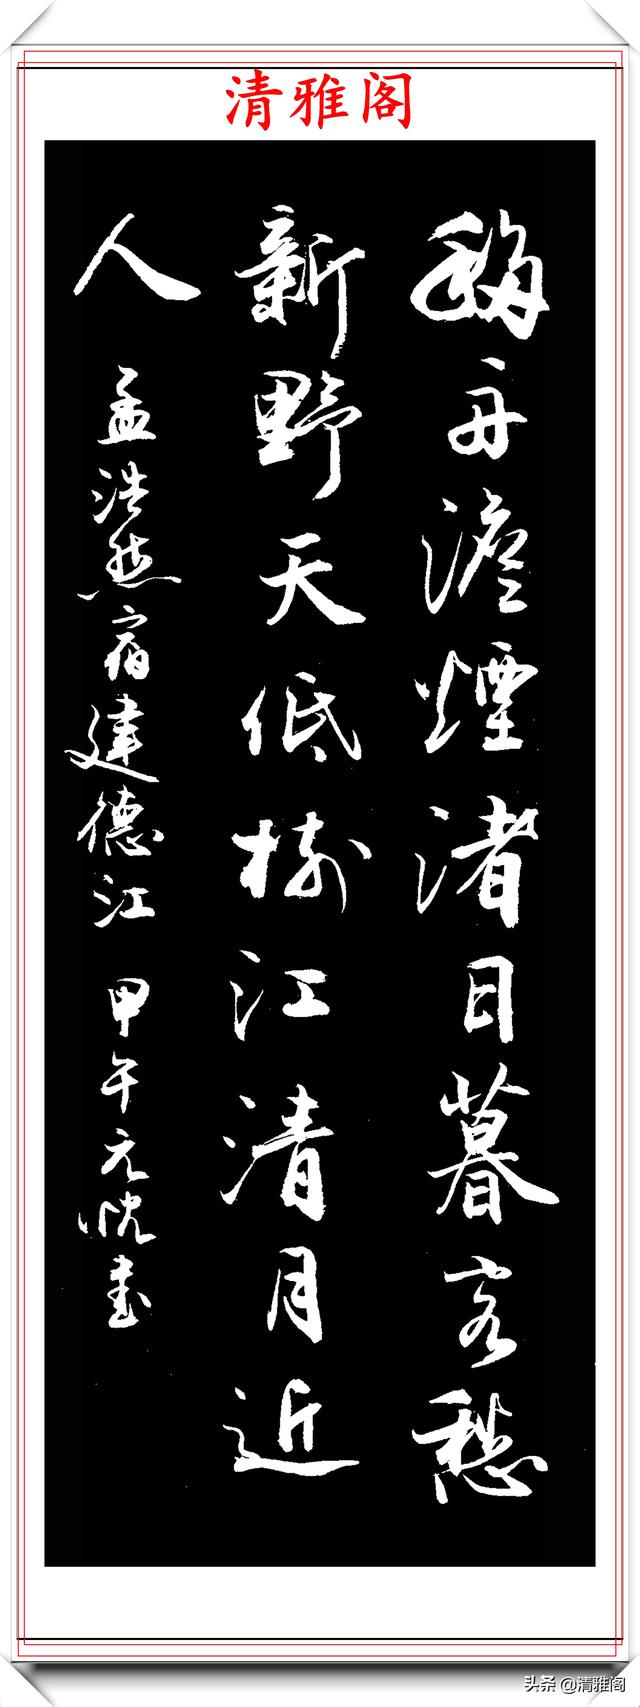 清雅阁
移舟澹煙渚日暮客愁
新野天低樹江清月近
人 孟浩然宿建德江 甲午元書
头条 @清雅阁